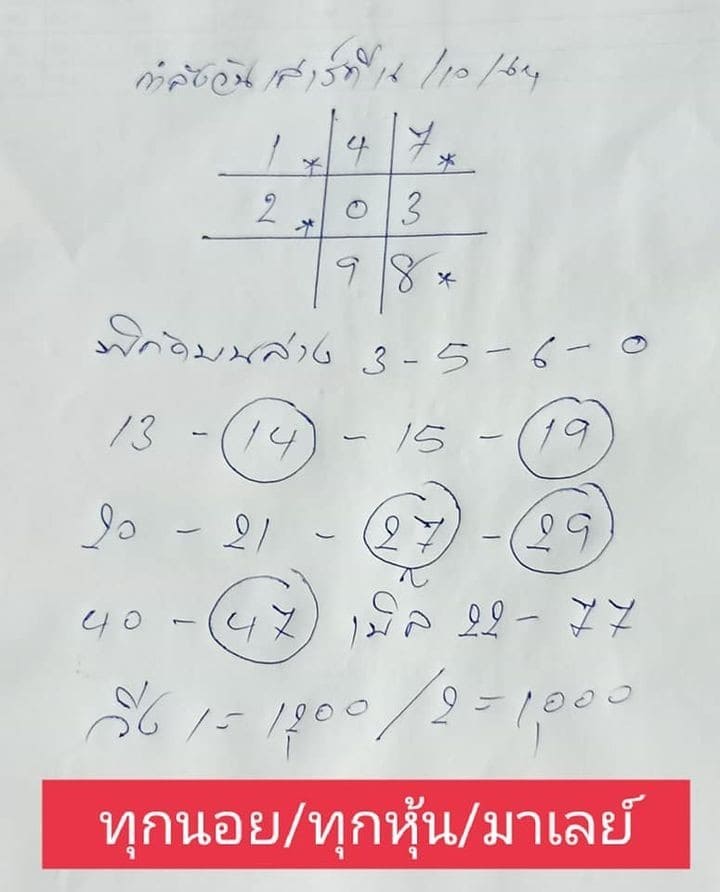 กำลังวันเสาร์ที่ /10/
1* 4 7*
2* 0 3
9 8*
พิกัดบนล่าง 3-5-6-0
13 - 14 - 15 - 19
20 - 21 - 27 - 29
40 - 47 เบิ้ล 22-77
วิ่ง 1=1,200/2=1,000
ทุกนอย/ทุกหุ้น/มาเลย์